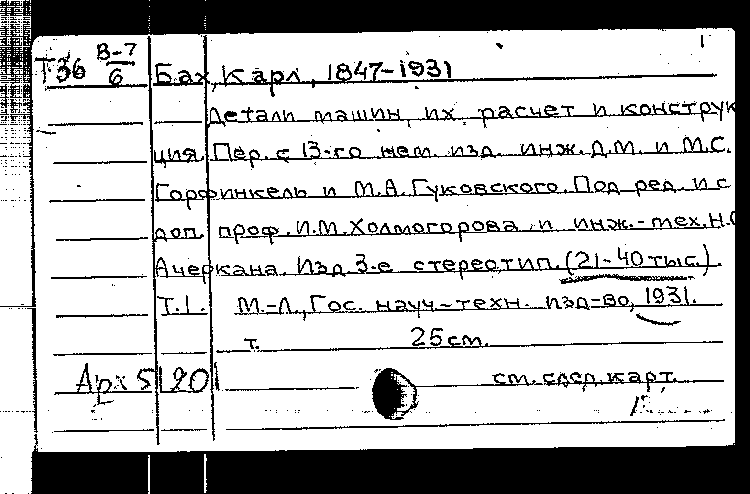 1
Т36 В-7/6 Бах, Карл, 1847-1931
Детали машин, их расчет и конструк
ция. Пер. с 13-го нем. изд. инж. Д.М. и М.С.
Горфинкель и М.А. Гуковского. Под ред. и с
доп. проф. И.М. Холмогорова и инж.-мех. Н.С
Ачеркана. Изд. 3-е стереотип. (21-40 тыс.)
Т.1. М.-Л., Гос. науч.-техн. изд-во, 1931.
т. 25 см.
Арх 5120 см. след. карт.